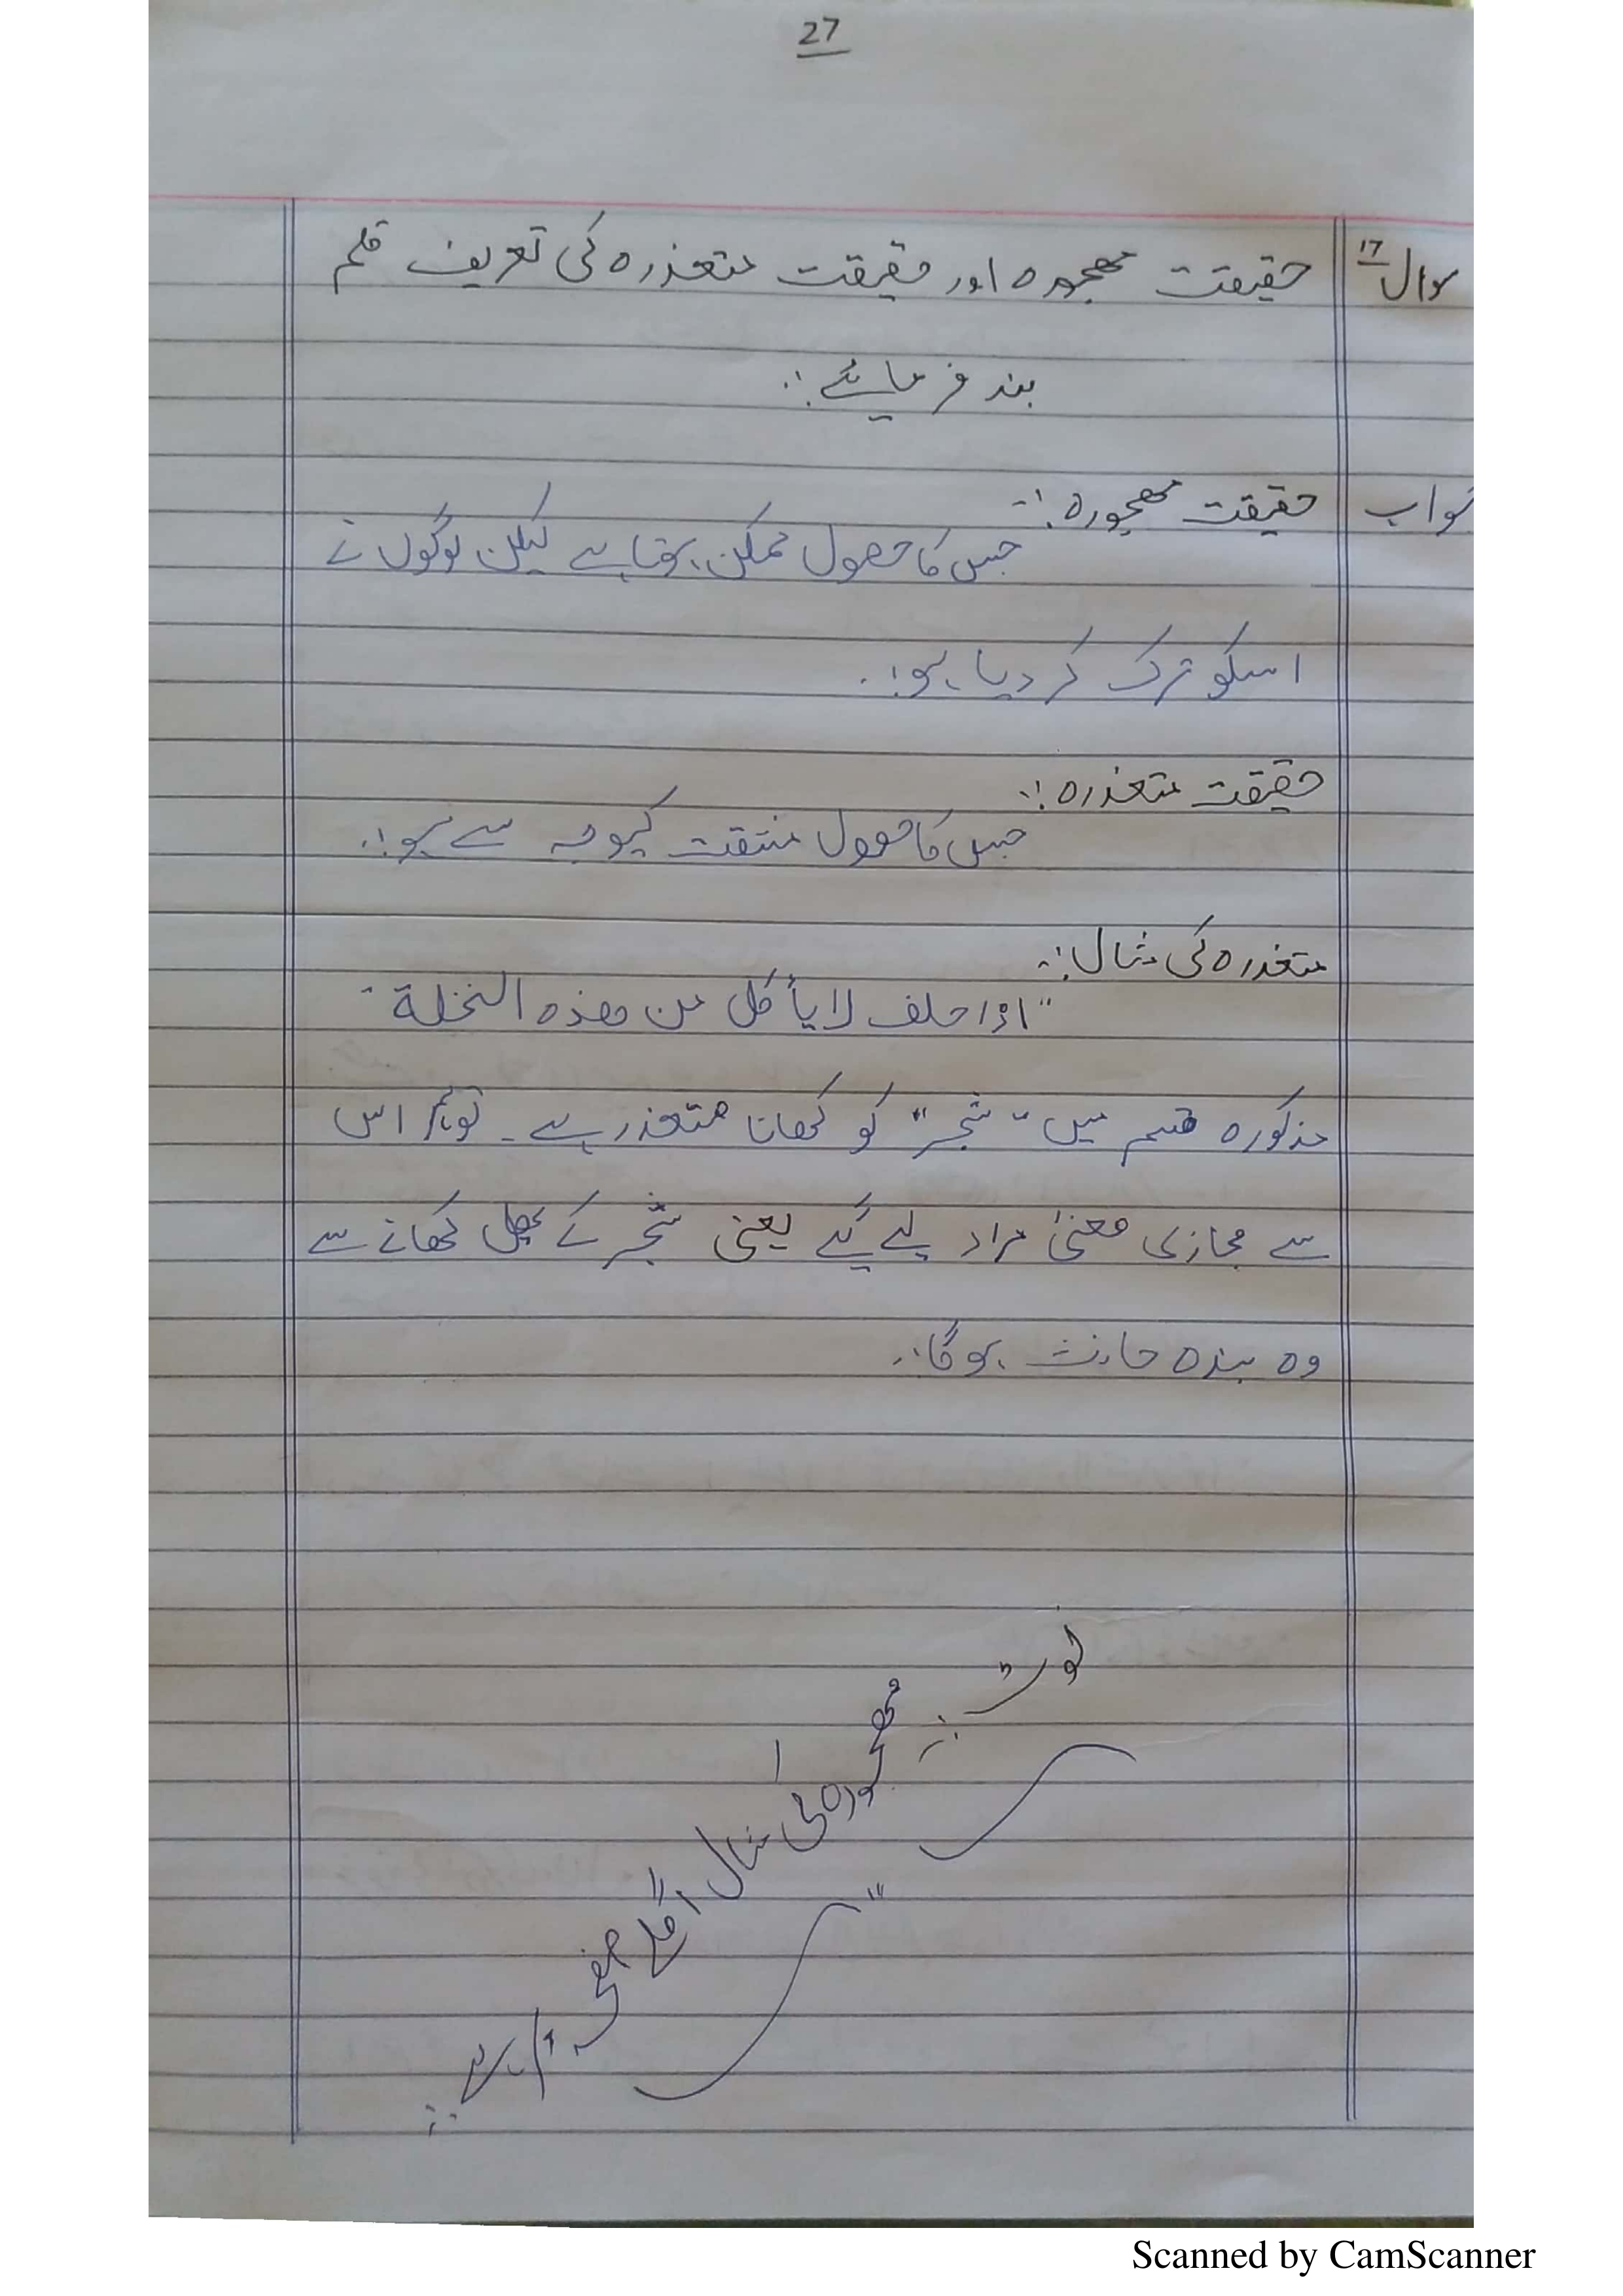 27
سوال 17 حقیقت مھجورہ اور حقیقت متعذرہ کی تعریف قلم
بند فرمائے:.
جواب حقیقت مھجورہ:-
جس کا حصول ممکن ہوتا ہے لیکن لوگوں نے
اسکو ترک کر دیا ہو:.
حقیقت متعذرہ:.
جس کا حصول مشقت کیوجہ سے ہو:.
متعذرہ کی مثال:-
"اذا حلف لا یأکل من ھذہ النخلة"
مذکورہ قسم میں "شجر" کو کھانا متعذر ہے۔ تو ہم اس
سے مجازی معنیٰ مراد لیے گیے یعنی شجر کے پھل کھانے سے
وہ بندہ حانث ہوگا:.
نوٹ :-
مھجورہ کی مثال اگلے صفحہ پر ہے:.
Scanned by CamScanner